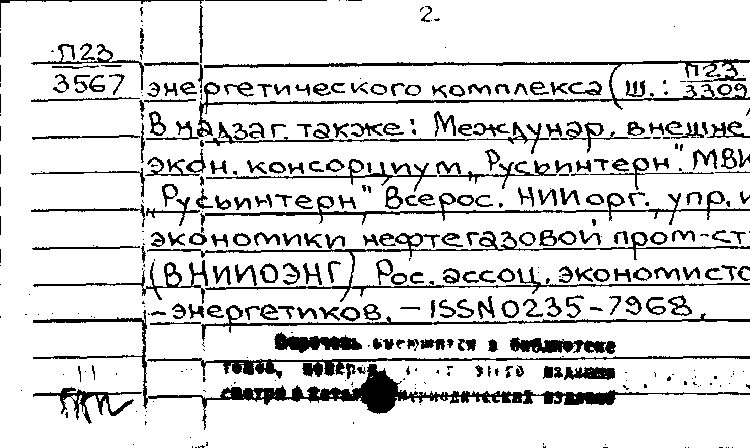 2.
П23
3567
энергетического комплекса (Ш.: П23
3309
В надзаг. также: Междунар. внешне
экон. консорциум „Русьинтерн". МВИ
„Русьинтерн" Всерос. НИИ орг., упр. и
экономики нефтегазовой пром-ст
(ВНИИОЭНГ), Рос. ассоц. экономисто
-энергетиков. – ISSN 0235-7968.
Перечень имеющихся в библиотеке
томов, номеров этого издания
смотри в периодических изданий